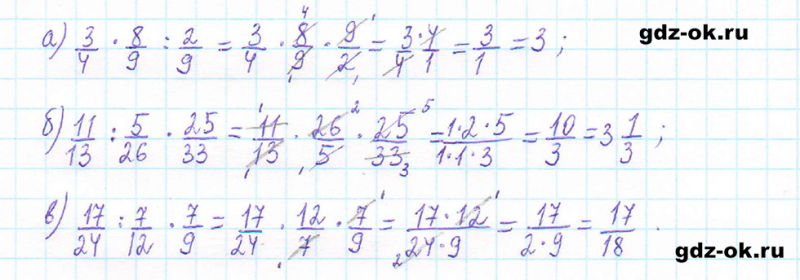 а) 3/4 · 8/9 : 2/9 = 3/4 · 8/9 · 9/2 = 3·4/4·1 = 3/1 = 3 ;
gdz-ok.ru
б) 11/13 : 5/26 · 25/33 = 11/13 · 26/5 · 25/33 = 1·2·5/1·1·3 = 10/3 = 3 1/3 ;
в) 17/24 : 7/12 · 7/9 = 17/24 · 12/7 · 7/9 = 17·12/24·9 = 17/2·9 = 17/18 .
gdz-ok.ru